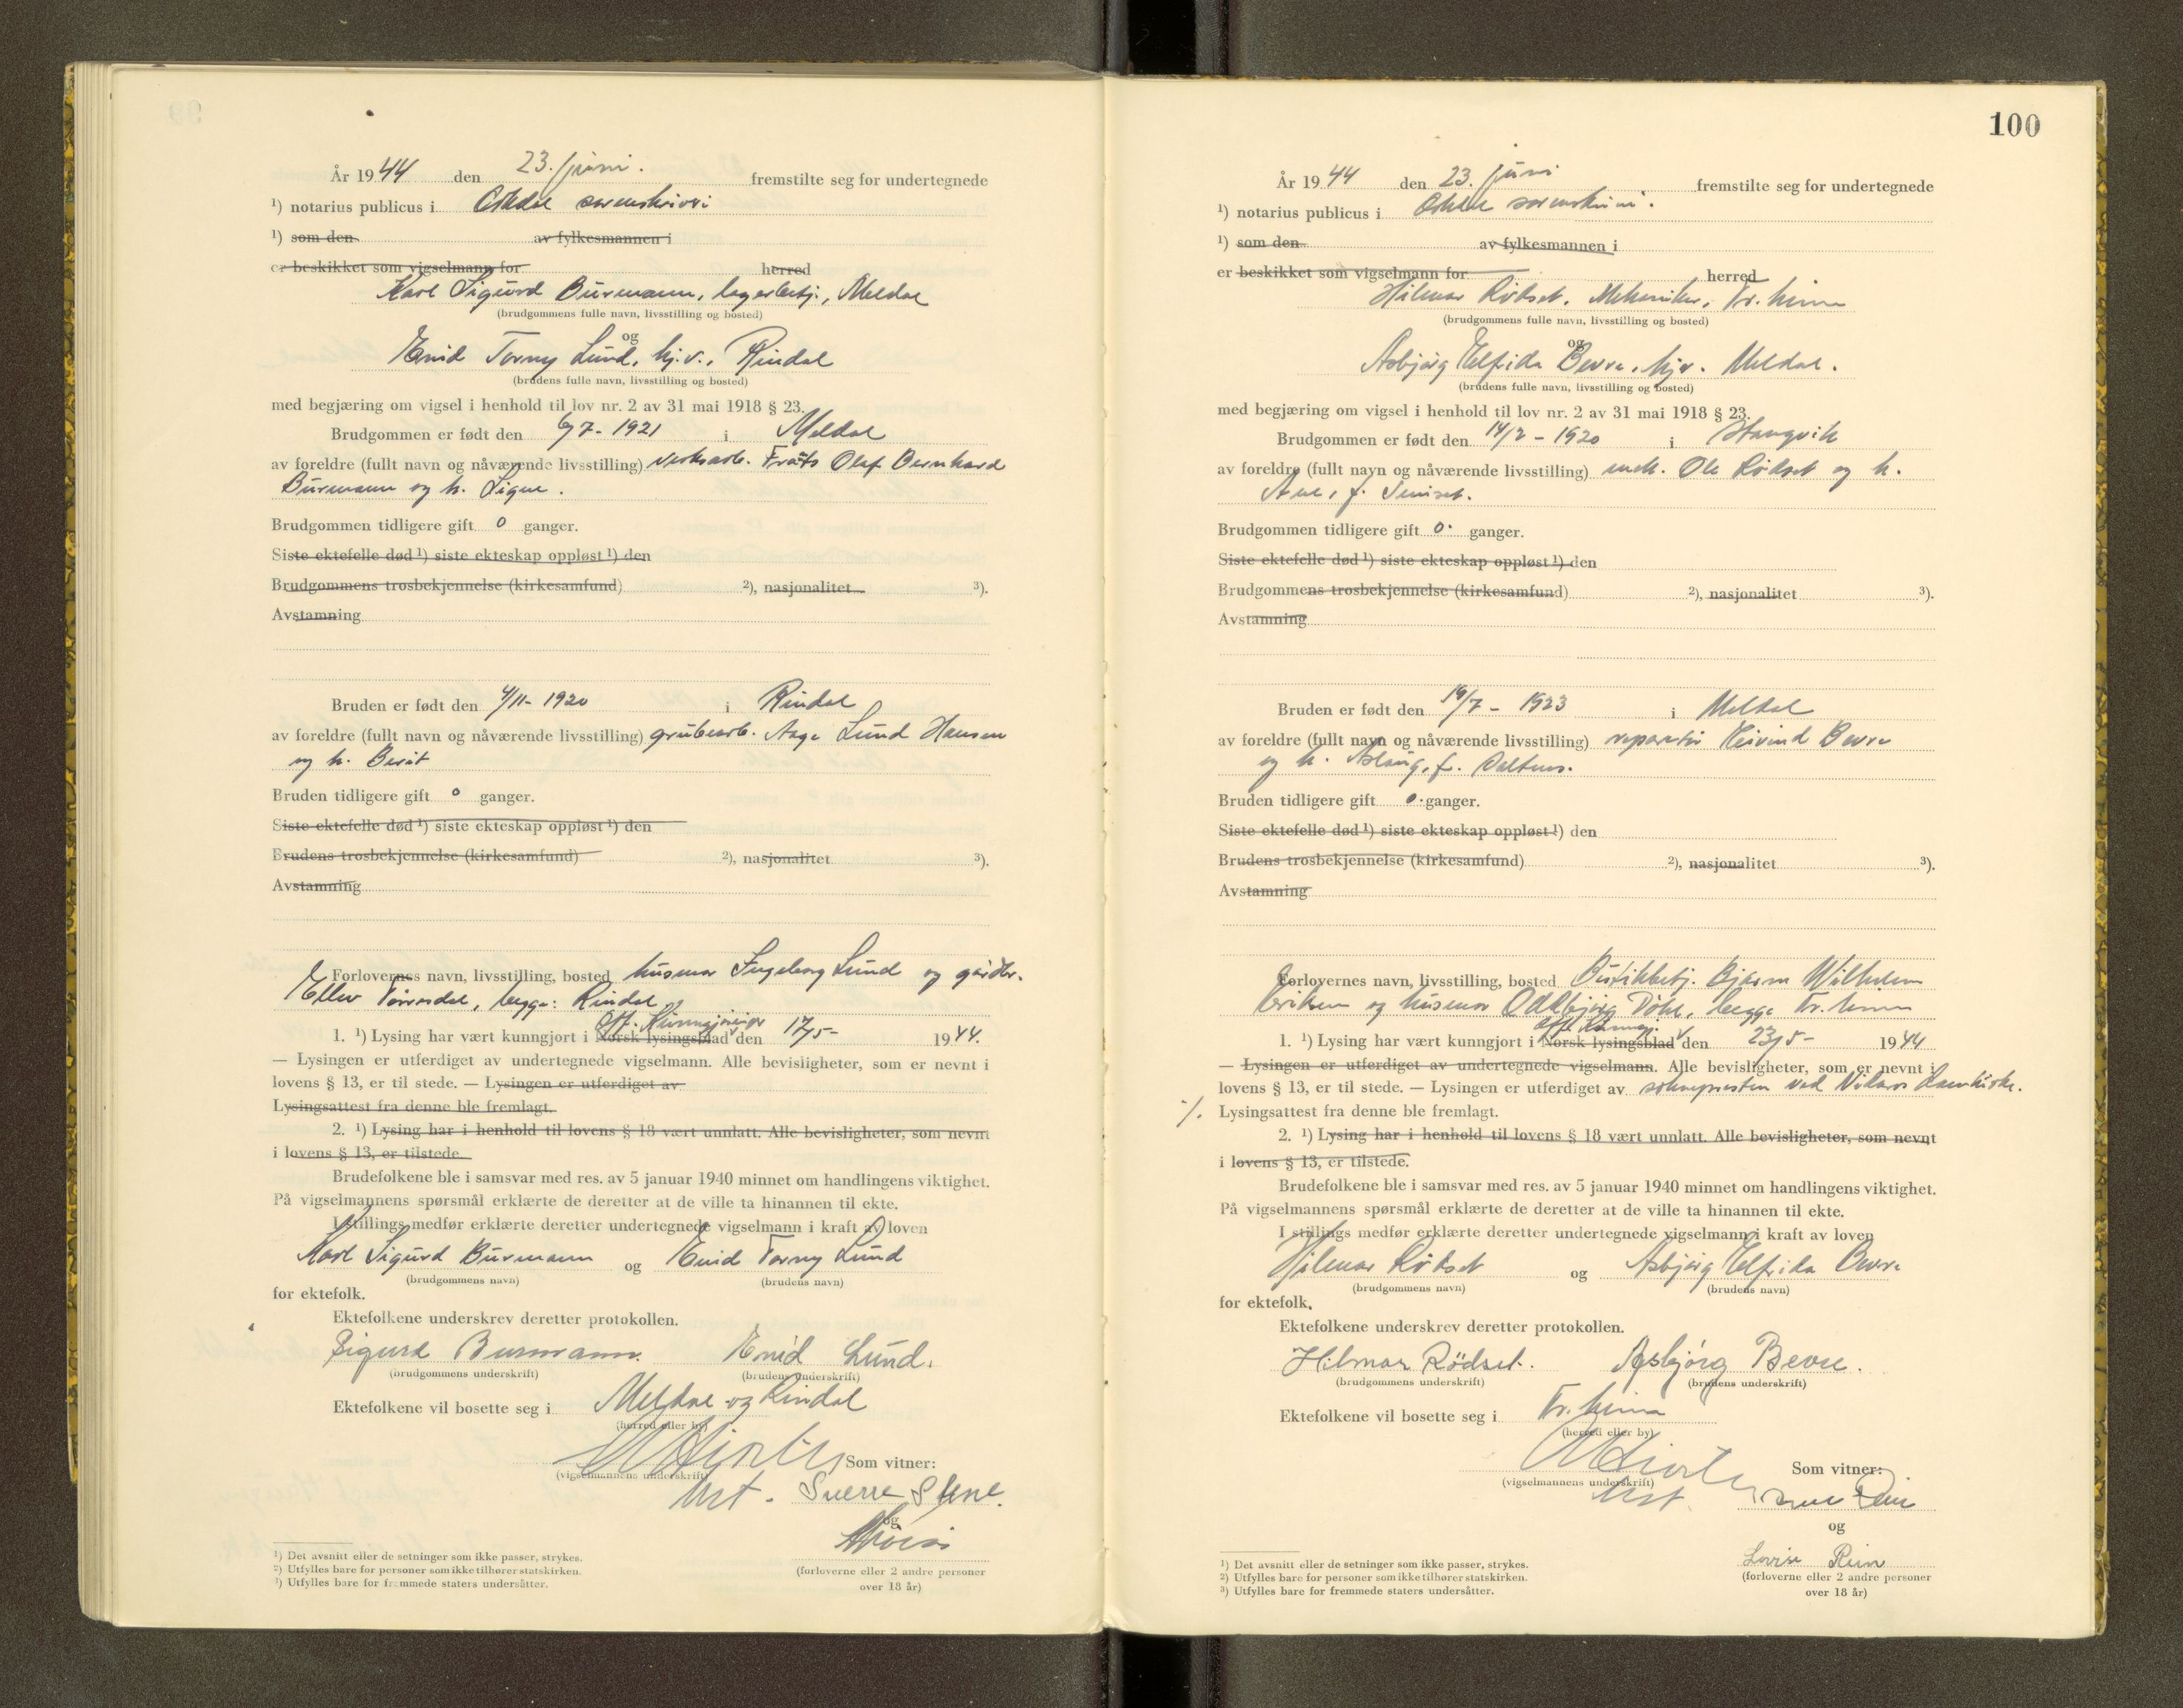 År 1944 den 23. juni. fremstilte seg for undertegnede
¹) notarius publicus i Orkdal sorenskriveri
¹) som den av fylkesmannen i
er beskikket som vigselmann for herred
Karl Sigurd Burmann, lagerbetj., Meldal
(brudgommens fulle navn, livsstilling og bosted)
og
Enid Torny Lund, hj.v., Rindal
(brudens fulle navn, livsstilling og bosted)
med begjæring om vigsel i henhold til lov nr. 2 av 31 mai 1918 § 23.
Brudgommen er født den 6/7- 1921 i Meldal
av foreldre (fullt navn og nåværende livsstilling) verksarb. Olaf Bernhard
Burmann og h. Signe.
Brudgommen tidligere gift 0 ganger.
Siste ektefelle død ¹) siste ekteskap oppløst ¹) den
Brudgommens trosbekjennelse (kirkesamfund) ²), nasjonalitet ³).
Avstamning
Bruden er født den 4/11- 1920 i Rindal
av foreldre (fullt navn og nåværende livsstilling) grubearb. Aage Lund Hansen
og h. Berit
Bruden tidligere gift 0 ganger.
Siste ektefelle død ¹) siste ekteskap oppløst ¹) den
Brudens trosbekjennelse (kirkesamfund) ²), nasjonalitet ³).
Avstamning
Forlovernes navn, livsstilling, bosted husmor Ingeborg Lund og gårdbr.
Ellev, begge: Rindal
off. Kunngjøringer
1. ¹) Lysing har vært kunngjort i Norsk lysingsblad den 17/5- 1944.
— Lysingen er utferdiget av undertegnede vigselmann. Alle bevisligheter, som er nevnt i
lovens § 13, er til stede. — Lysingen er utferdiget av
Lysingsattest fra denne ble fremlagt.
2. ¹) Lysing har i henhold til lovens § 18 vært unnlatt. Alle bevisligheter, som nevnt
i lovens § 13, er tilstede.
Brudefolkene ble i samsvar med res. av 5 januar 1940 minnet om handlingens viktighet.
På vigselmannens spørsmål erklærte de deretter at de ville ta hinannen til ekte.
I stillings medfør erklærte deretter undertegnede vigselmann i kraft av loven
Karl Sigurd Burmann og Enid Torny Lund
(brudgommens navn) (brudens navn)
for ektefolk.
Ektefolkene underskrev deretter protokollen.
Sigurd Burmann. Enid Lund.
(brudgommens underskrift) (brudens underskrift)
Ektefolkene vil bosette seg i Meldal og Rindal
(herred eller by)
Som vitner:
(vigselmannens underskrift)
Sverre Stene.
og
(forloverne eller 2 andre personer
over 18 år)
¹) Det avsnitt eller de setninger som ikke passer, strykes.
²) Utfylles bare for personer som ikke tilhører statskirken.
³) Utfylles bare for fremmede staters undersåtter.
100
År 1944 den 23. juni fremstilte seg for undertegnede
¹) notarius publicus i Orkdal sorenskriveri.
¹) som den av fylkesmannen i
er beskikket som vigselmann for herred
Hilmar Rødset, Mekaniker, Tr.heim
(brudgommens fulle navn, livsstilling og bosted)
og
Asbjørg Elfrida Bevre, hjv. Meldal.
(brudens fulle navn, livsstilling og bosted)
med begjæring om vigsel i henhold til lov nr. 2 av 31 mai 1918 § 23.
Brudgommen er født den 14/2 - 1920 i Stangvik
av foreldre (fullt navn og nåværende livsstilling) Ole Rødset og h.
Brudgommen tidligere gift 0. ganger.
Siste ektefelle død ¹) siste ekteskap oppløst ¹) den
Brudgommens trosbekjennelse (kirkesamfund) ²), nasjonalitet ³).
Avstamning
Bruden er født den 19/7 - 1923 i Meldal
av foreldre (fullt navn og nåværende livsstilling) reparatør Eivind Bevre
og h. Aslaug, f.
Bruden tidligere gift 0. ganger.
Siste ektefelle død ¹) siste ekteskap oppløst ¹) den
Brudens trosbekjennelse (kirkesamfund) ²), nasjonalitet ³).
Avstamning
Forlovernes navn, livsstilling, bosted Butikkbetj. Bjarne Wilhelm
Eriksen og husmor Oddbjørg, begge Tr.heim
off. Kunngj.
1. ¹) Lysing har vært kunngjort i Norsk lysingsblad den 23/5- 1944
— Lysingen er utferdiget av undertegnede vigselmann. Alle bevisligheter, som er nevnt i
lovens § 13, er til stede. — Lysingen er utferdiget av soknepresten ved Nidaros Domkirke.
·/. Lysingsattest fra denne ble fremlagt.
2. ¹) Lysing har i henhold til lovens § 18 vært unnlatt. Alle bevisligheter, som nevnt
i lovens § 13, er tilstede.
Brudefolkene ble i samsvar med res. av 5 januar 1940 minnet om handlingens viktighet.
På vigselmannens spørsmål erklærte de deretter at de ville ta hinannen til ekte.
I stillings medfør erklærte deretter undertegnede vigselmann i kraft av loven
Hilmar Rødset og Asbjørg Elfrida Bevre
(brudgommens navn) (brudens navn)
for ektefolk.
Ektefolkene underskrev deretter protokollen.
Hilmar Rödset. Asbjörg Bevre.
(brudgommens underskrift) (brudens underskrift)
Ektefolkene vil bosette seg i Tr.heim
(herred eller by)
Som vitner:
(vigselmannens underskrift)
og
Lovise Rein
(forloverne eller 2 andre personer
over 18 år)
¹) Det avsnitt eller de setninger som ikke passer, strykes.
²) Utfylles bare for personer som ikke tilhører statskirken.
³) Utfylles bare for fremmede staters undersåtter.